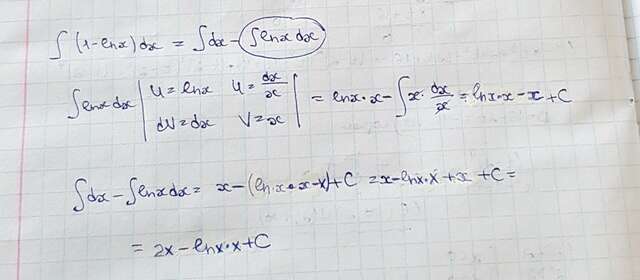 ∫ (1-lnx)dx = ∫dx - ∫lnx dx
∫lnx dx | U = lnx U = dx/x | = lnx·x - ∫x·dx/x = lnx·x - x + C
dV = dx V = x
∫dx - ∫lnx dx = x - (lnx·x - x) + C = x - lnx·x + x + C =
= 2x - lnx·x + C